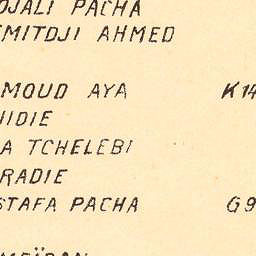 DJALI PACHA
EMITDJI AHMED
MOUD AYA K14
IDIE
A TCHELEBI
RADIE
STAFA PACHA G9
MEÏDAN